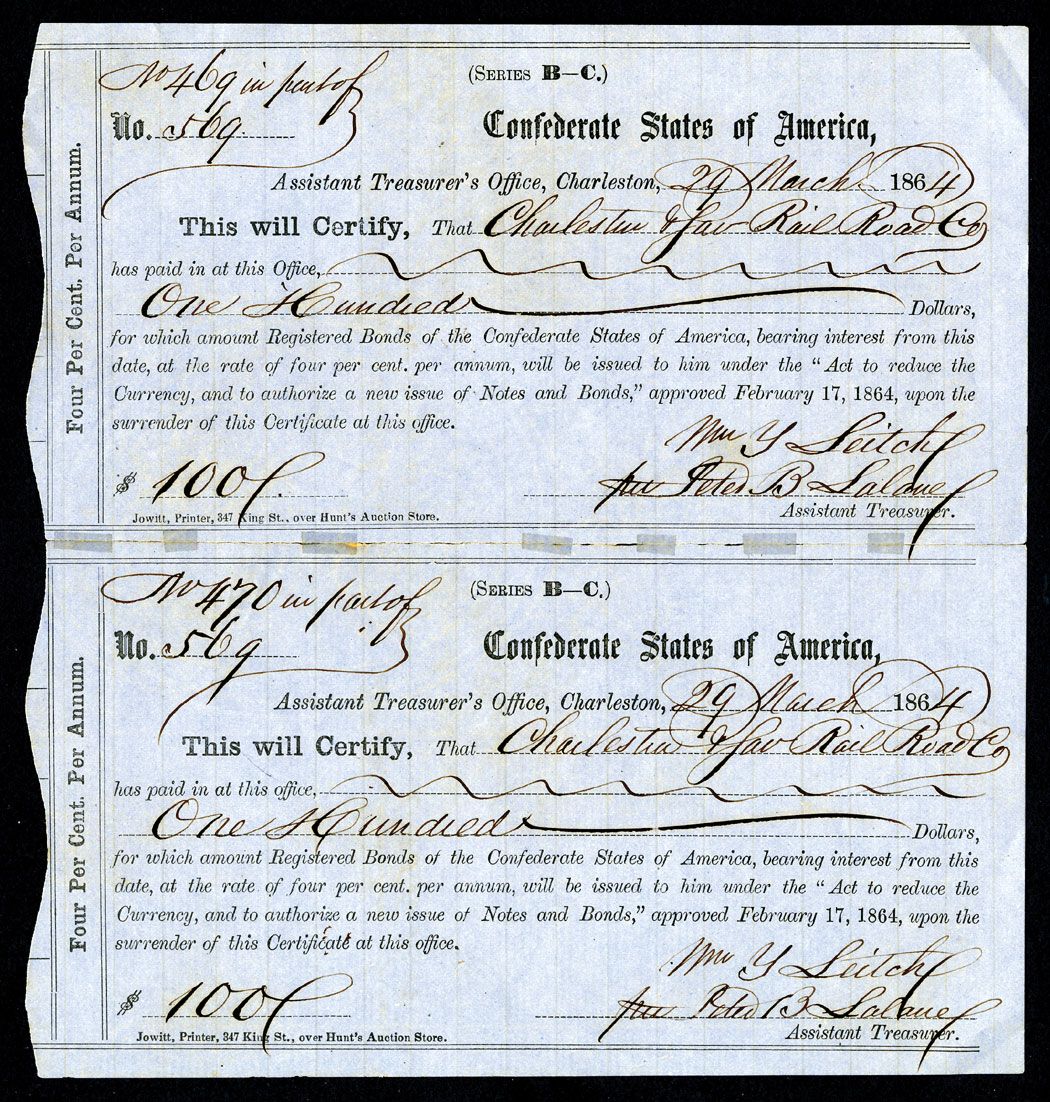 Four Per Cent. Per Annum.
No 469 in part of
(Series B—C.)
No. 569.
Confederate States of America,
Assistant Treasurer's Office, Charleston, 29 March 1864
This will Certify, That Charleston & Sav Rail Road Co
has paid in at this Office,
One Hundred Dollars,
for which amount Registered Bonds of the Confederate States of America, bearing interest from this
date, at the rate of four per cent. per annum, will be issued to him under the "Act to reduce the
Currency, and to authorize a new issue of Notes and Bonds," approved February 17, 1864, upon the
surrender of this Certificate at this office.
Wm Y Leitch
$ 100
per Peter B Lalane
Assistant Treasurer.
Jowitt, Printer, 347 King St., over Hunt's Auction Store.
Four Per Cent. Per Annum.
No 470 in part of
(Series B—C.)
No. 569
Confederate States of America,
Assistant Treasurer's Office, Charleston, 29 March 1864
This will Certify, That Charleston & Sav Rail Road Co
has paid in at this office,
One Hundred Dollars,
for which amount Registered Bonds of the Confederate States of America, bearing interest from this
date, at the rate of four per cent. per annum, will be issued to him under the "Act to reduce the
Currency, and to authorize a new issue of Notes and Bonds," approved February 17, 1864, upon the
surrender of this Certificate at this office.
Wm Y Leitch
$ 100
per Peter B Lalane
Assistant Treasurer.
Jowitt, Printer, 347 King St., over Hunt's Auction Store.